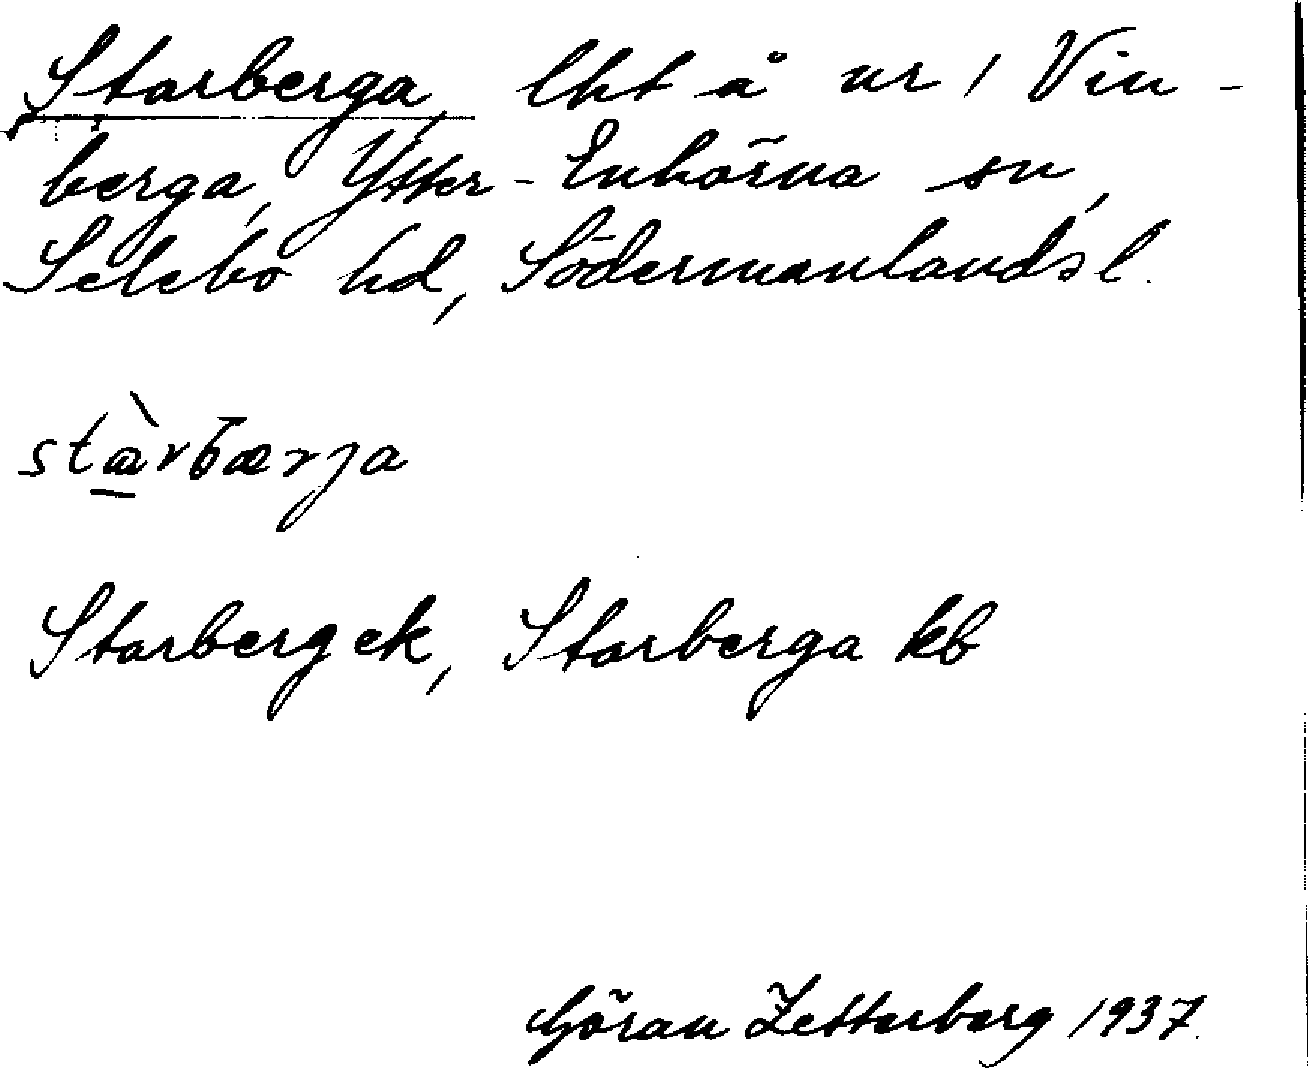 Starberga, lht å nr 1 Vin-
berga, Ytter-Enhörna sn,
Selebo hd, Södermanlands l.
stàrbærja
Starberg ek, Starberga kb
Göran Zetterberg 1937.